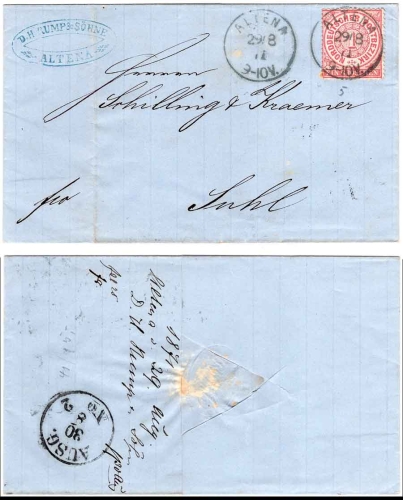 D. H. RUMP & SÖHNE
ALTENA
ALTENA
29/8
71
9-10V.
ALTENA
29/8
71
9-10V.
5
Herren
Schilling & Kraemer
fro
Suhl
1871
Altena d. 29 Aug
D. H. Rump &
AUSG.
30
8
No 2